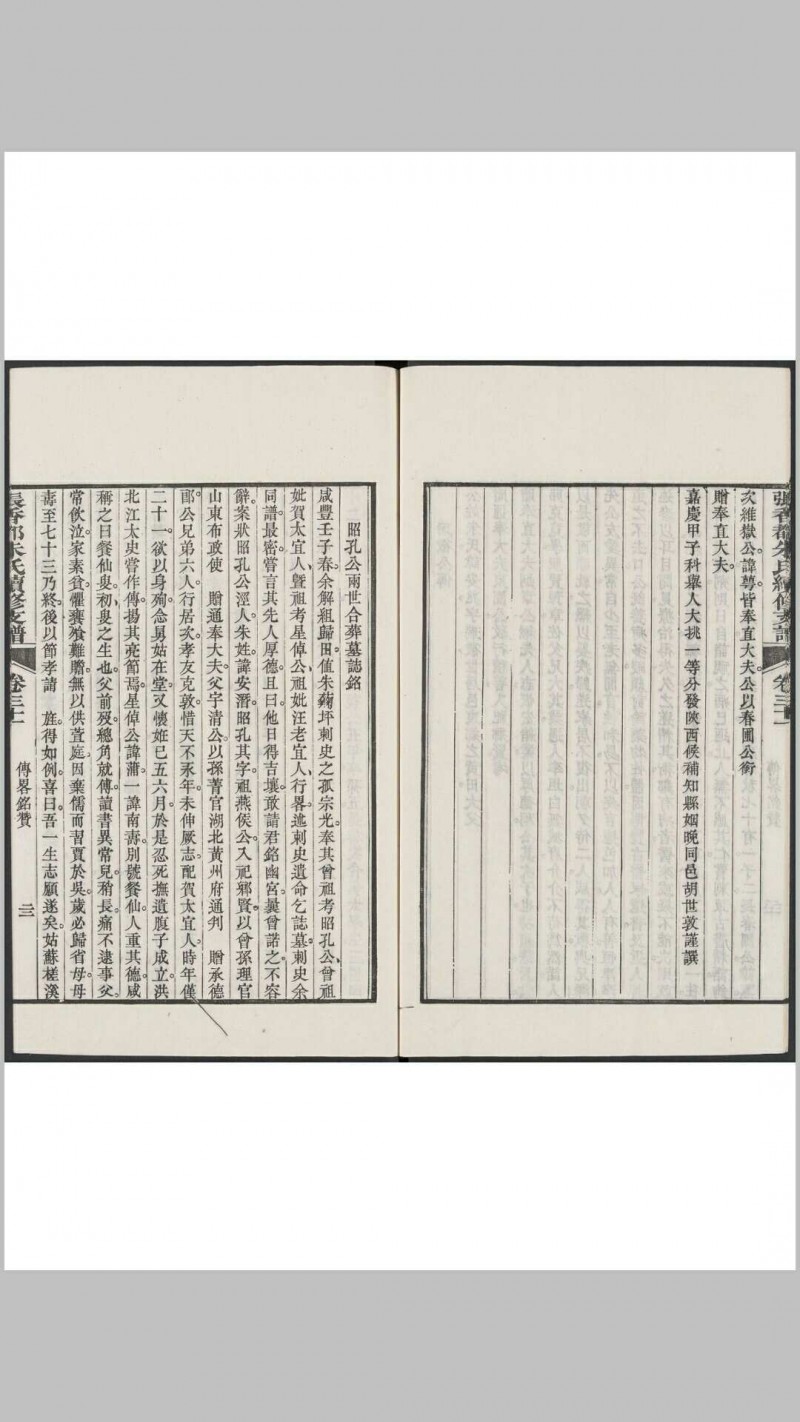 張香都朱氏續修支譜
卷三十
次維嶽公。諱蓴皆奉直大夫。公以春圃公銜
贈奉直大夫。
嘉慶甲子科舉人大挑一等分發陝西候補知縣姻晚同邑胡世敦謹譔
昭孔公兩世合葬墓誌銘
咸豐壬子春。余解組歸田。值朱蘜坪刺史之孤宗光奉其曾祖考昭孔公、曾祖
妣賀太宜人、暨祖考星倬公、祖妣汪老宜人、行畧。述刺史遺命乞誌墓。刺史余
同譜。最密嘗言其先人厚德。且曰。他日得吉壤。敢請君銘幽宮。曩曾諾之。不容
辭案狀昭孔公涇人。朱姓。諱安潛。昭孔其字。祖燕侯。公入祀鄉賢。以曾孫理官
山東布政使 贈通奉大夫。父宇清公。以孫菁官湖北黃州府通判 贈承德
郎。公兄弟六人。行居次。孝友克敦。惜天不永年。未伸厥志。配賀太宜人。時年僅
二十一。欲以身殉。念舅姑在堂。又懷妊已五六月。於是忍死撫遺腹子成立。洪
北江太史嘗作傳揚其亮節焉。星倬公諱蒲。一諱南壽。別號餐仙。人重其德。咸
稱之曰餐仙叟。初叟之生也。父前歿。總角就傅。讀書異常兒。稍長。痛不逮事父。
常飲泣。家素貧。懼饔飱難贍。無以供萱庭。因棄儒而習賈於吳。歲必歸省母。母
壽至七十三乃終。後以節孝請 旌得如例。喜曰。吾一生志願遂矣。姑蘇槎溪
張香都朱氏續修支譜
卷三十
傳畧銘贊
三